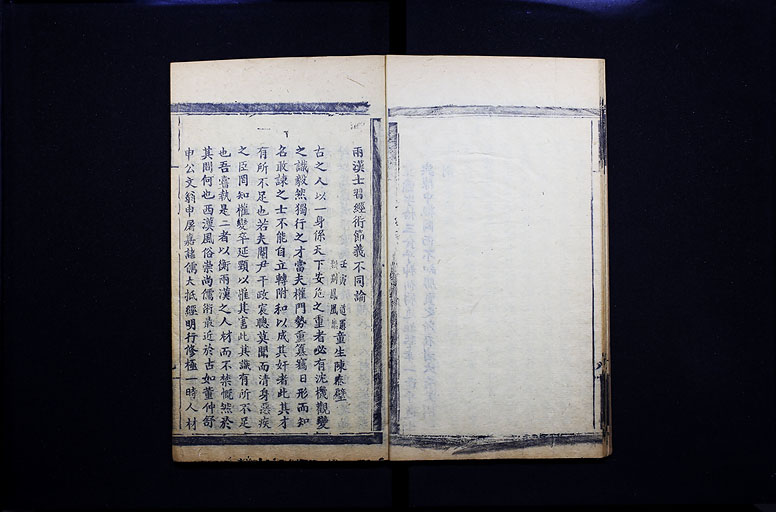 兩漢士習經術節義不同論
壬寅 道試 童生陳泰墍
古之人以一身係天下安危之重者必有沈機觀變
之識毅然獨行之才當夫權門勢重篡竊日形而知
名敢諫之士不能自立轉附和以成其奸者此其才
有所不足也若夫閹尹干政宸聰莫聞而清身惡疾
之臣罔知權變卒延顆以罹其害此其識有所不足
也吾嘗執是二者以衡兩漢之人材而不禁慨然於
其間何也西漢風俗崇尚儒術最近於古如董仲舒
申公文翁申屠嘉諸儒大抵經明行修極一時人材